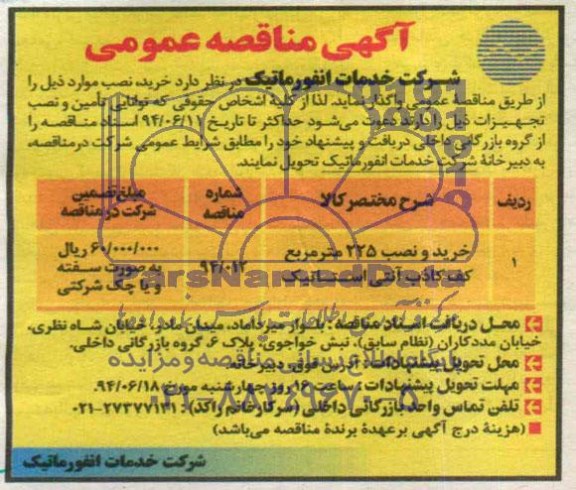 آگهی مناقصه عمومی
شرکت خدمات انفورماتیک در نظر دارد خرید، نصب موارد ذیل را
از طریق مناقصهٔ عمومی واگذار نماید. لذا از کلیه اشخاص حقوقی که توانایی تأمین و نصب
تجهیزات ذیل را دارند دعوت می‌شود حداکثر تا تاریخ ۹۴/۰۶/۱۱ اسناد مناقصه را
از گروه بازرگانی داخلی دریافت و پیشنهاد خود را مطابق شرایط عمومی شرکت در مناقصه،
به دبیرخانهٔ شرکت خدمات انفورماتیک تحویل نمایند.
ردیف شرح مختصر کالا شماره مناقصه مبلغ تضمین شرکت در مناقصه
۱ خرید و نصب ۲۲۵ مترمربع کف کاذب آنتی استاتیک ۹۴/۰۱۲ ۶۰/۰۰۰/۰۰۰ ریال به صورت سفته و یا چک شرکتی
ParsNamadData
محل دریافت اسناد مناقصه: بلوار میرداماد، میدان مادر، خیابان شاه نظری،
خیابان مددکاران (نظام سابق)، نبش خواجوی، پلاک ۶، گروه بازرگانی داخلی.
پایگاه اطلاع رسانی مناقصه و مزایده
محل تحویل پیشنهادات: آدرس فوق، دبیرخانه.
مهلت تحویل پیشنهادات: ساعت ۱۶ روز چهارشنبه مورخ ۹۴/۰۶/۱۸.
۰۲۱-۸۸۳۴۹۶۷۰-۵
تلفن تماس واحد بازرگانی داخلی (سرکار خانم راکد): ۲۷۳۷۷۱۳۱-۰۲۱
(هزینهٔ درج آگهی بر عهدهٔ برندهٔ مناقصه می‌باشد)
شرکت خدمات انفورماتیک